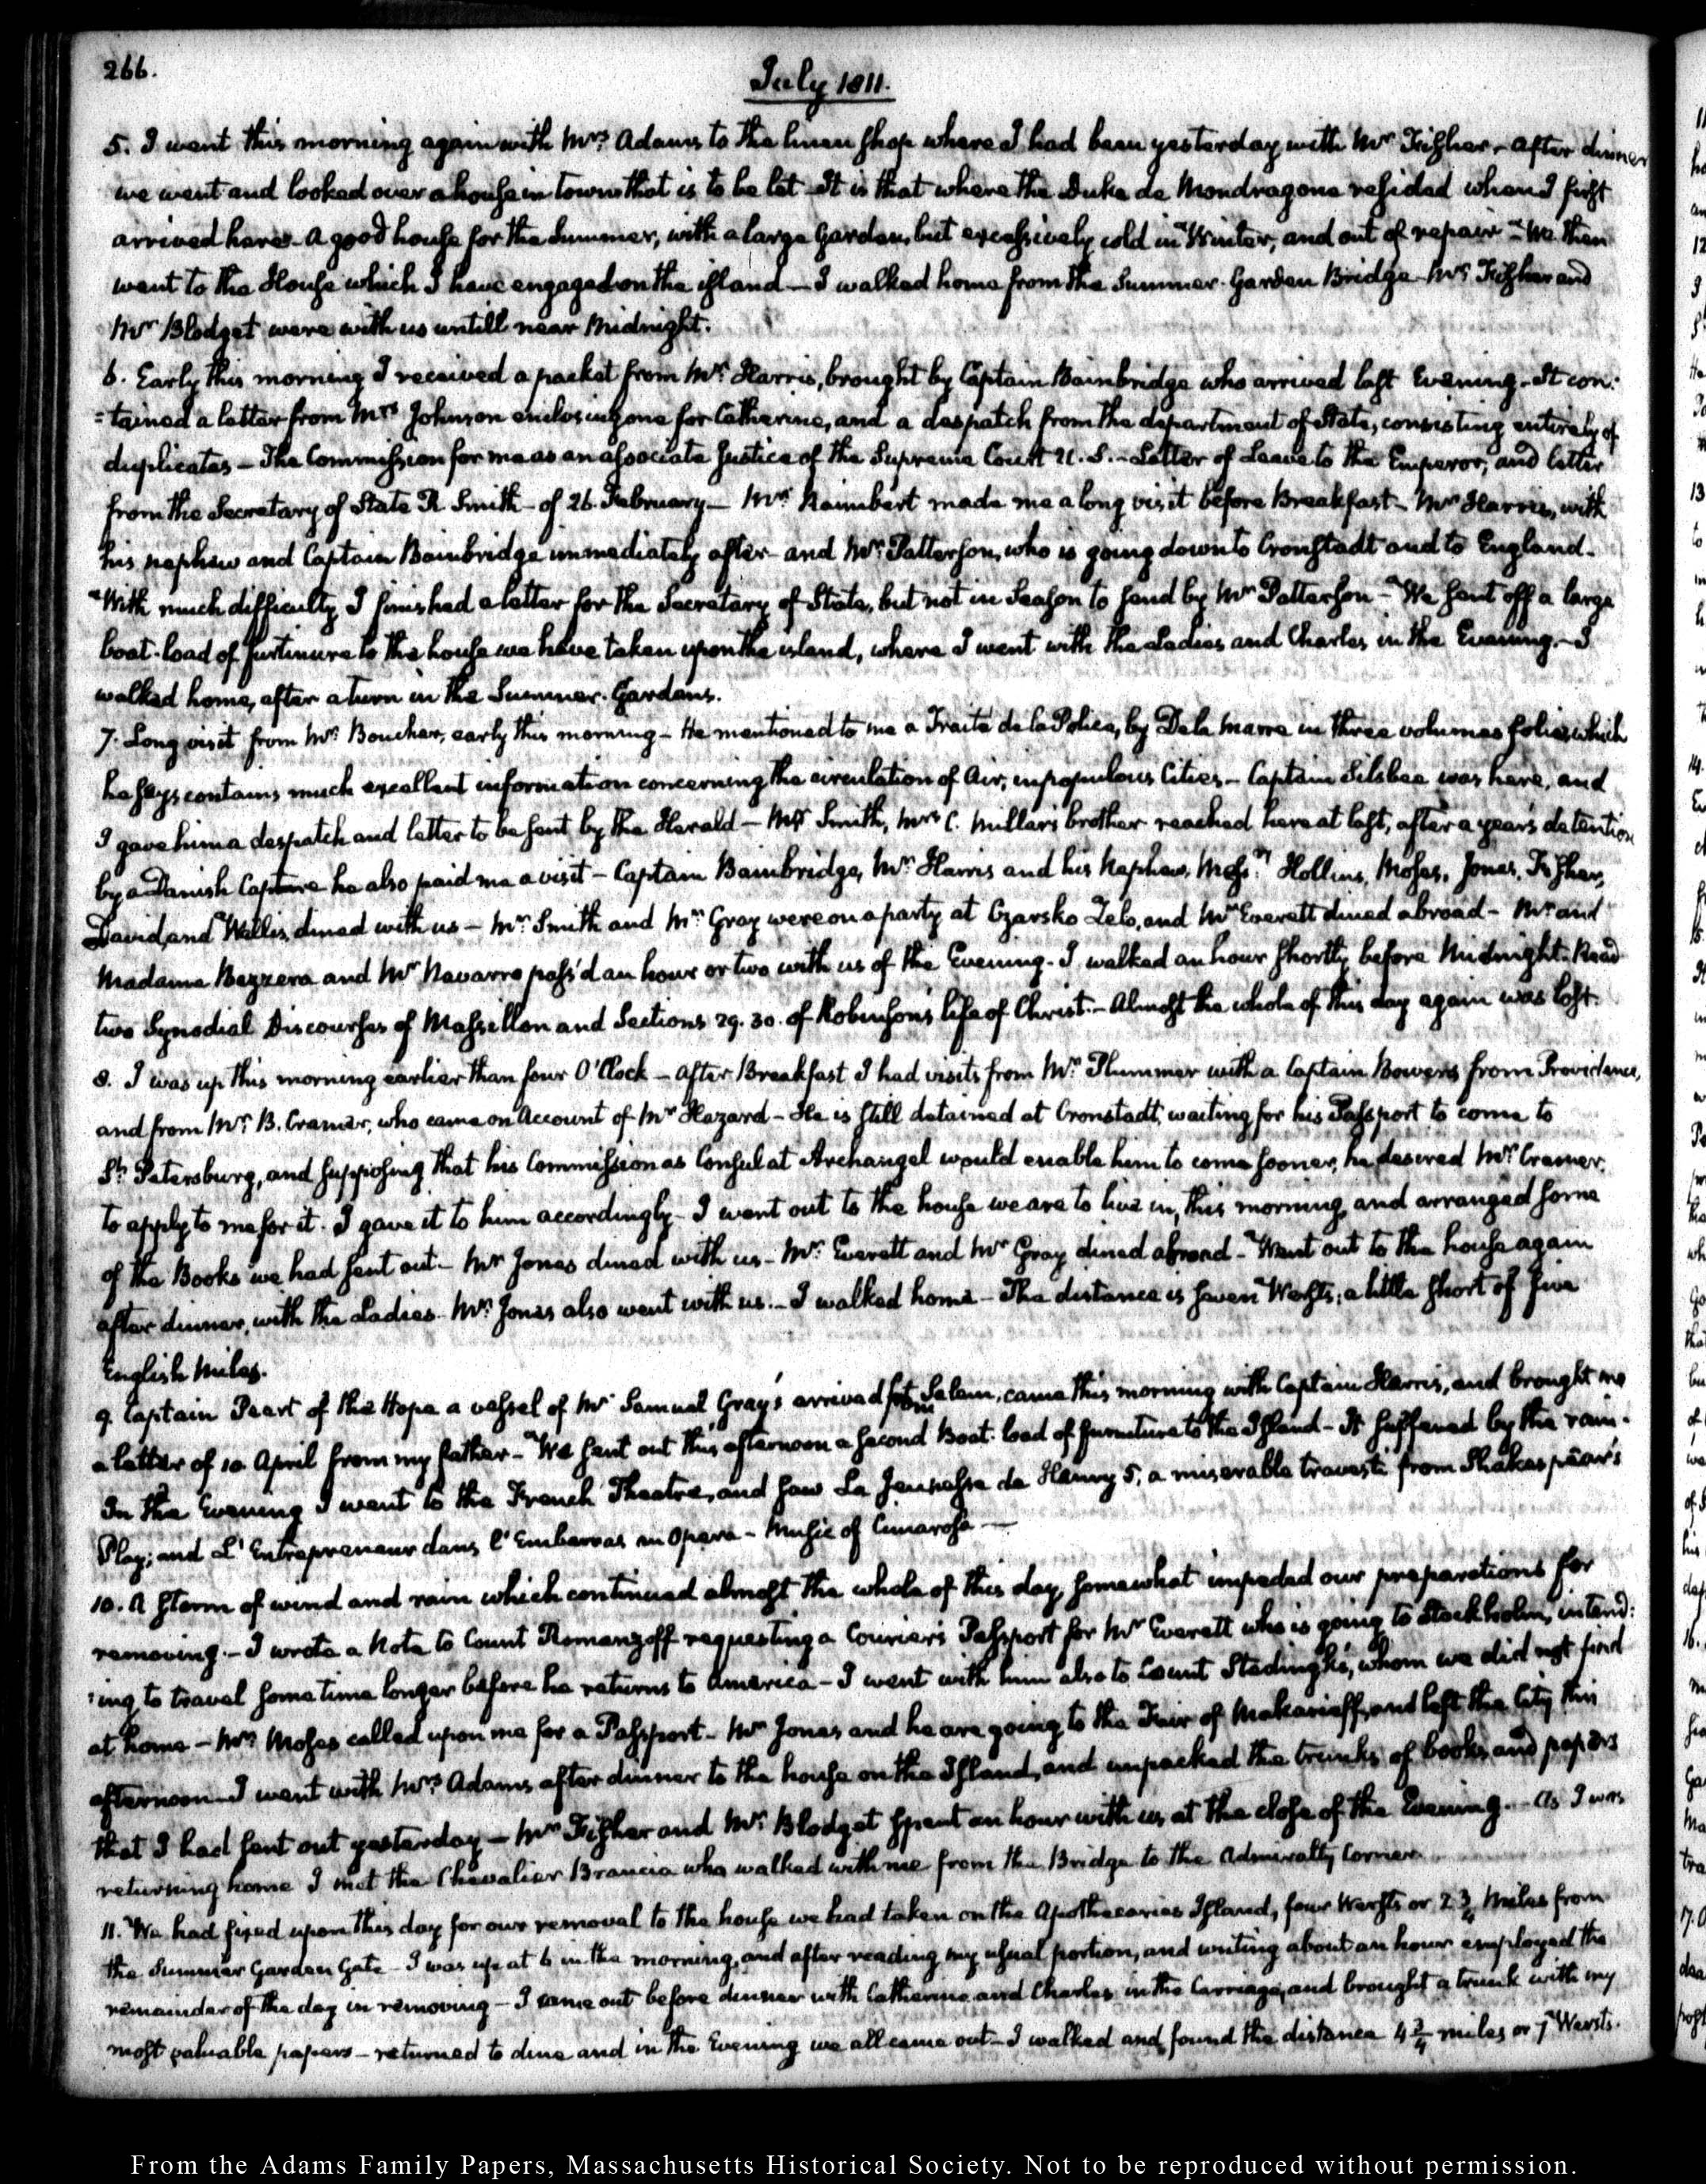 266.
July 1811.
5. I went this morning again with Mrs. Adams to the linen shop where I had been yesterday with Mr Fisher. After dinner
we went and looked over a house in town that is to be let. It is that where the Duke de Mondragone resided when I first
arrived here. A good house for the Summer, with a large Garden, but excessively cold in Winter, and out of repair – We then
went to the House which I have engaged on the island — I walked home from the Summer-Garden Bridge. Mr Fisher and
Mr Blodget were with us untill near Midnight.
6. Early this morning I received a packet from Mr Harris, brought by Captain Bainbridge who arrived last Evening – It con:
:tained a letter from Mrs Johnson enclosing one for Catherine, and a despatch from the department of State, consisting entirely of
duplicates – The Commission for me as an associate Justice of the Supreme Court U.S. – Letter of Leave to the Emperor, and letter
from the Secretary of State R Smith – of 26. February — Mr Raimbert made me a long visit before Breakfast – Mr Harris, with
his nephew and Captain Bainbridge immediately after – and Mr Patterson, who is going down to Cronstadt and to England.
With much difficulty I finished a letter for the Secretary of State, but not in Season to send by Mr Patterson – We sent off a large
boat-load of furtinure to the house we have taken upon the island, where I went with the Ladies and Charles in the Evening. – I
walked home, after a turn in the Summer-Gardens.
7. Long visit from Mr Boucher, early this morning – He mentioned to me a Traité de la Police, by De la Marre in three volumes folio, which
he says contains much excellent information concerning the circulation of Air, in populous Cities – Captain Silsbee was here, and
I gave him a despatch and letter to be sent by the Herald – Mr Smith, Mrs C. Millar's brother reached here at last, after a years detention
by a Danish Capture he also paid me a visit – Captain Bainbridge, Mr Harris and his Nephew, Messrs Hollins, Moses, Jones, Fisher,
David, and Willis, dined with us – Mr Smith and Mr Gray were on a party at Czarsko Zelo, and Mr Everett dined abroad – Mr and
Madame Bezzera and Mr Navarro pass'd an hour or two with us of the Evening – I walked an hour shortly before Midnight. Read
two Synodial Discourses of Massillon and Sections 29. 30. of Robinson's life of Christ. – Almost the whole of this day again was lost.
8. I was up this morning earlier than four O'Clock – After Breakfast I had visits from Mr Plummer with a Captain Bowers from Providence,
and from Mr B. Cramer, who came on Account of Mr Hazard – He is still detained at Cronstadt, waiting for his Passport to come to
St Petersburg, and supposing that his Commission as Consul at Archangel would enable him to come sooner, he desired Mr Cramer,
to apply to me for it. I gave it to him accordingly – I went out to the house we are to live in, this morning, and arranged some
of the Books we had sent out – Mr Jones dined with us – Mr Everett and Mr Gray dined abroad – Went out to the house again
after dinner, with the Ladies. Mr Jones also went with us. – I walked home – The distance is seven Wersts; a little short of five
English miles.
9. Captain Peart of the Hope a vessel of Mr Samuel Gray's arrived from Salem, came this morning with Captain Harris, and brought me
a letter of 10. April from my father – We sent out this afternoon a second Boat-load of furniture to the Island – It suffered by the rain.
In the Evening I went to the French Theatre, and saw La Jeunesse de Henry 5, a miserable travesti from Shakespear's
Play; and L'Entrepreneur dans l'Embarras an Opera – Music of Cimarosa —
10. A storm of wind and rain which continued almost the whole of this day, somewhat impeded our preparations for
removing. – I wrote a Note to Count Romanzoff requesting a Courier's Passport for Mr Everett who is going to Stockholm, intend:
:ing to travel some time longer before he returns to America – I went with him also to Count Stedingk's, whom we did not find
at home – Mr Moses called upon me for a Passport – Mr Jones and he are going to the Fair of Makarieff, and left the City this
afternoon – I went with Mrs Adams after dinner to the house on the Island, and unpacked the trunks of books and papers
that I had sent out yesterday – Mr Fisher and Mr Blodget spent an hour with us at the close of the Evening. – As I was
returning home I met the Chevalier Brancia who walked with me from the Bridge to the Admiralty Corner.
11. We had fixed upon this day for our removal to the house we had taken on the Apothecaries Island, four Wersts or 2 3/4 miles from
the Summer Garden Gate – I was up at 6 in the morning, and after reading my usual portion, and writing about an hour employed the
remainder of the day in removing – I came out before dinner with Catherine and Charles in the Carriage, and brought a trunk with my
most valuable papers – returned to dine and in the Evening we all came out – I walked and found the distance 4 3/4 miles or 7 Wersts.
From the Adams Family Papers, Massachusetts Historical Society. Not to be reproduced without permission.